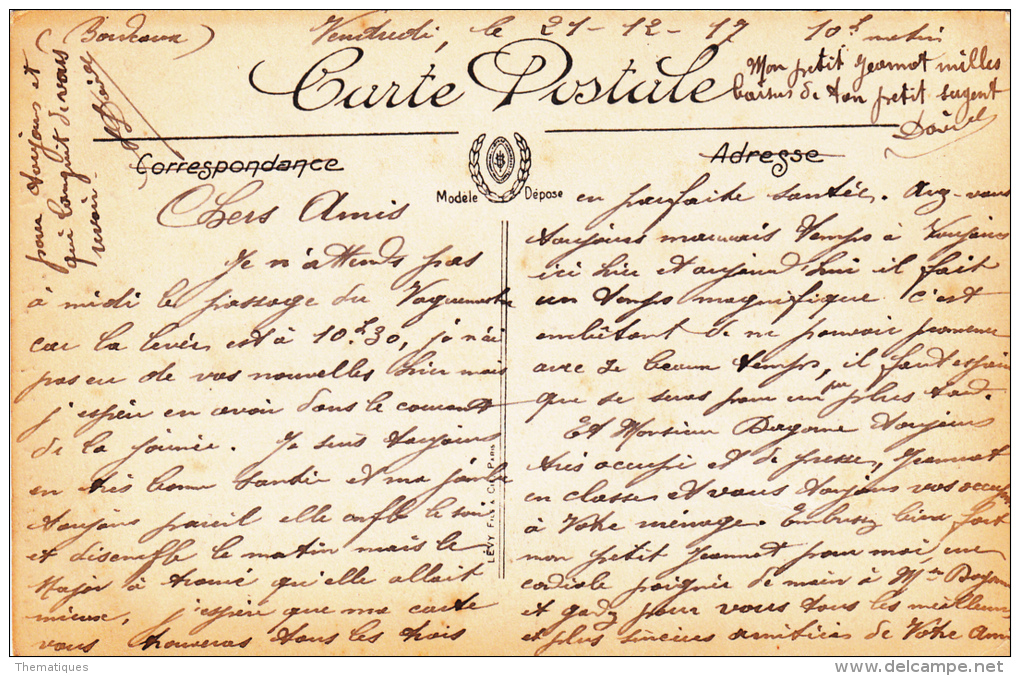 (Bordeaux)
Vendredi, le 21-12-17 10h matin
Carte Postale
Mon petit Jeannot milles
baisers de ton petit sergent
Correspondance
Adresse
Modèle Déposé
Chers Amis
Je n'attends pas
à midi le passage du Vaguemestre
car la levée est à 10h30, je n'ai
pas eu de vos nouvelles hier mais
j'espère en avoir dans le courant
de la journée. Je suis toujours
en très bonne santée et ma jambe
toujours pareil elle enfle le soir
et désenfle le matin mais le
Major à trouvé qu'elle allait
mieux, j'espère que ma carte
vous trouveras tous les trois
en parfaite santée. Avez-vous
toujours mauvais temps à
ici hier et aujourd'hui il fait
un temps magnifique c'est
embêtant de ne pouvoir promener
avec ce beau temps, il faut espérer
que se seras pour un peu plus tard.
Et Monsieur toujours
très occupé et de presse, Jeannot
en classe et vous toujours vos occup
à votre ménage. Embrassez bien fort
mon petit Jeannot pour moi, une
cordiale poignée de main à Mr
et gardez pour vous tous les meilleurs
et plus sincères amitiées de Votre Ami
pour toujours et
qui languit de vous
revoir-
LÉVY FILS & Cie PARIS
Thematiques
www.delcampe.net